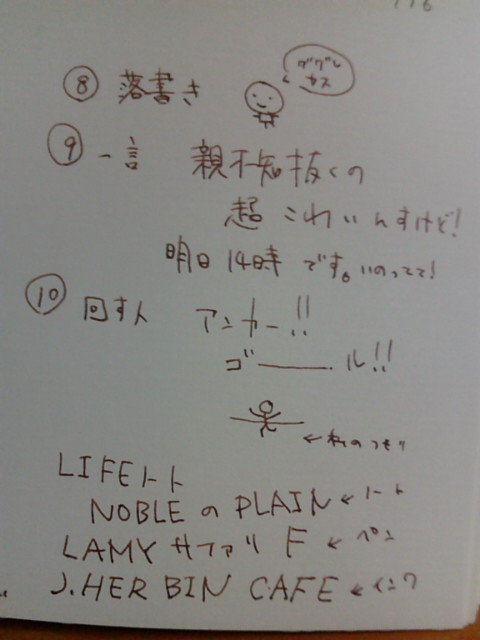 116
⑧ 落書き
ググレ
カス
⑨ 一言 親不知抜くの
超こわいんすけど!
明日14時です。いのってて!
⑩ 回す人 アンカー!!
ゴーール!!
←私のつもり
LIFEノート
NOBLEのPLAIN←ノート
LAMYサファリ F←ペン
J.HERBIN CAFE←インク